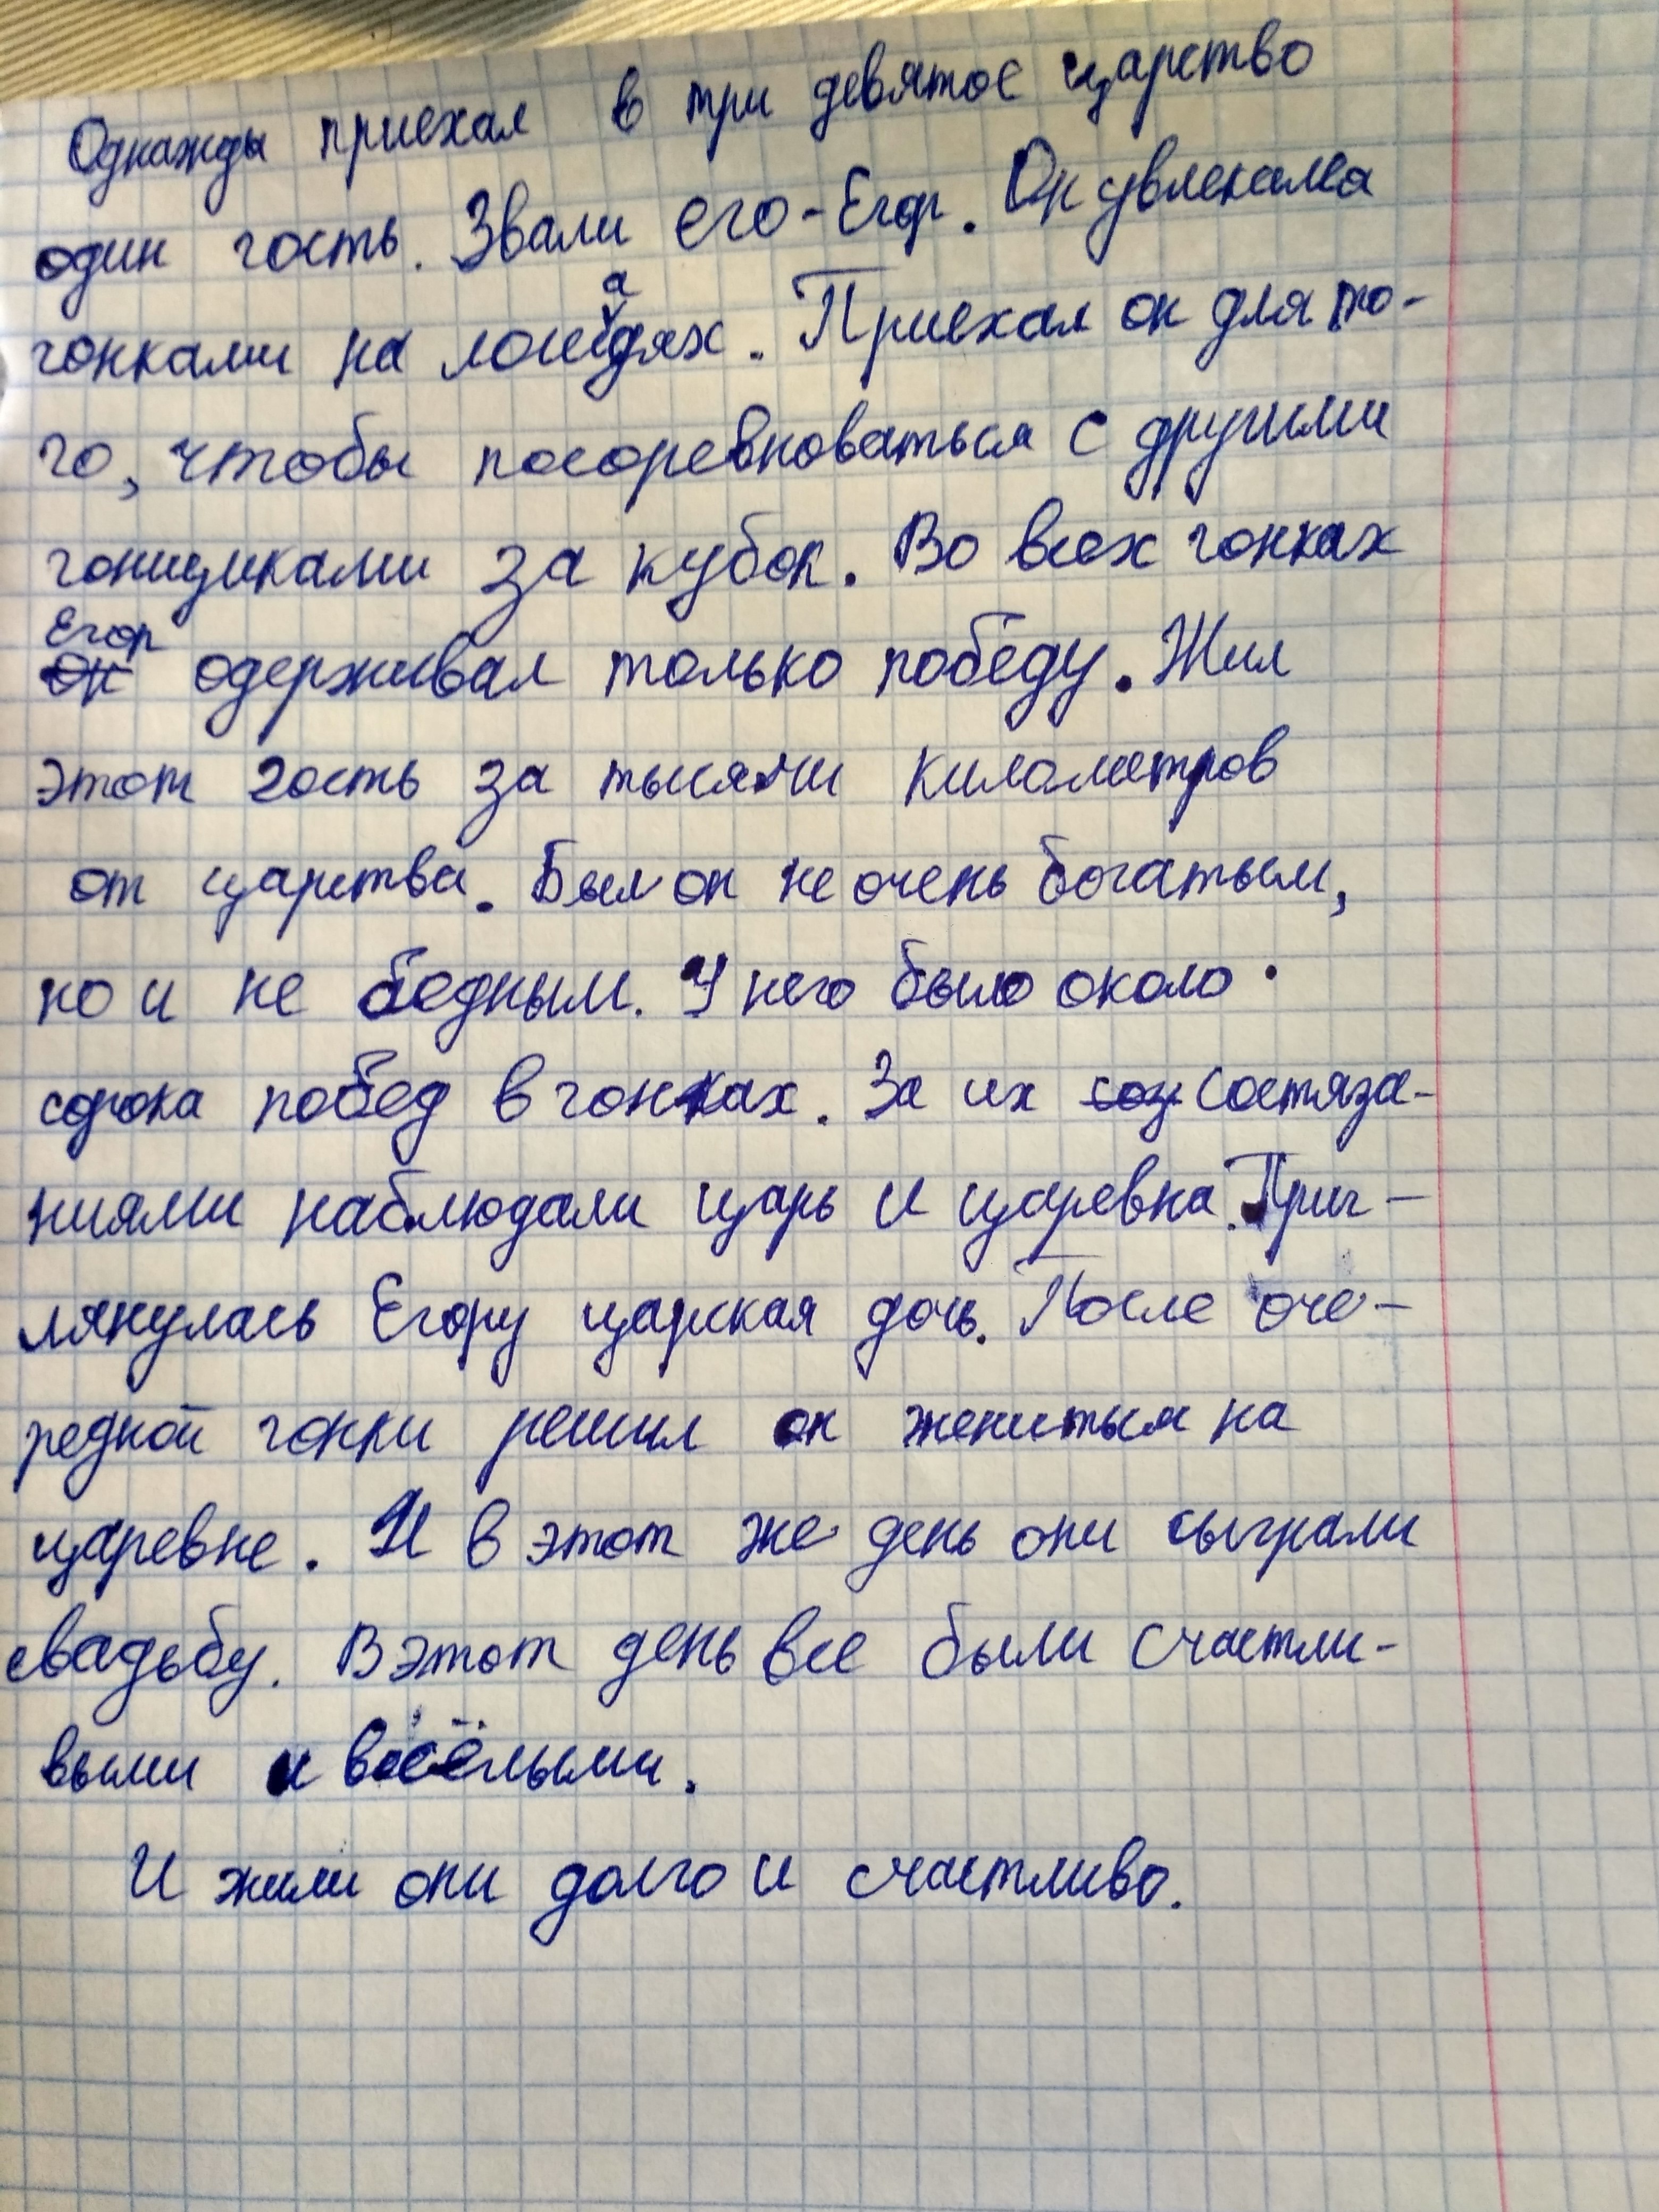 Однажды приехал в три девятое царство
один гость. Звали его - Егор. Он увлекался
гонками на лошадях. Приехал он для то-
го, чтобы посоревноваться с другими
гонщиками за кубок. Во всех гонках
Егор одерживал только победу. Жил
этот гость за тысячи километров
от царства. Был он не очень богатым,
но и не бедным. У него было около
сорока побед в гонках. За их соз состяза-
ниями наблюдали царь и царевна. Приг-
лянулась Егору царская дочь. После оче-
редной гонки решил он жениться на
царевне. И в этот же день они сыграли
свадьбу. В этот день все были счастли-
выми и весёлыми.
И жили они долго и счастливо.